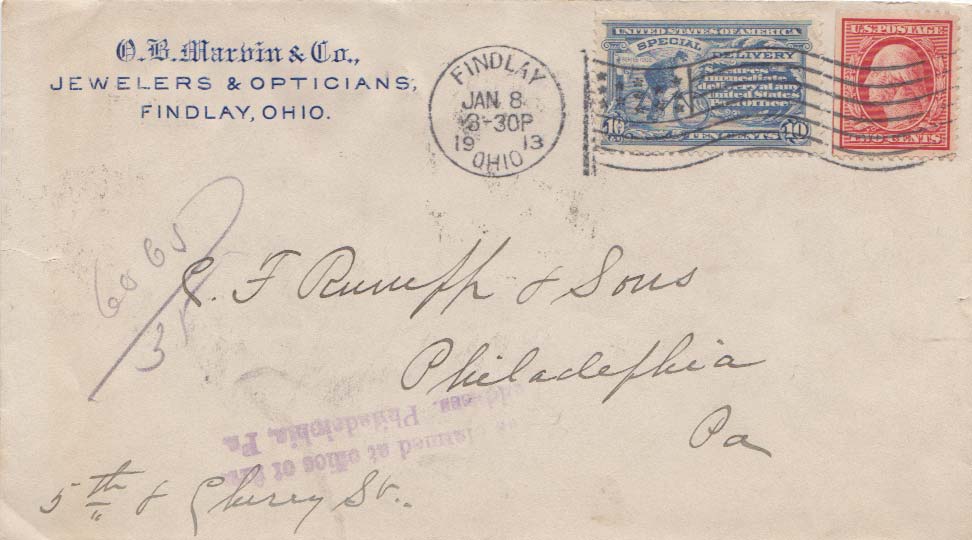 O.B. Marvin & Co.,
JEWELERS & OPTICIANS,
FINDLAY, OHIO.
FINDLAY
JAN 8
-30P
19 13
OHIO
UNITED STATES OF AMERICA
SPECIAL DELIVERY
Secures
immediate
delivery at any
United States
Post office
10 TEN CENTS 10
U.S. POSTAGE
TWO CENTS
6065
F & Sons
Philadelphia
Pa
claimed at office of
Philadelphia, Pa
5th & Cherry St.